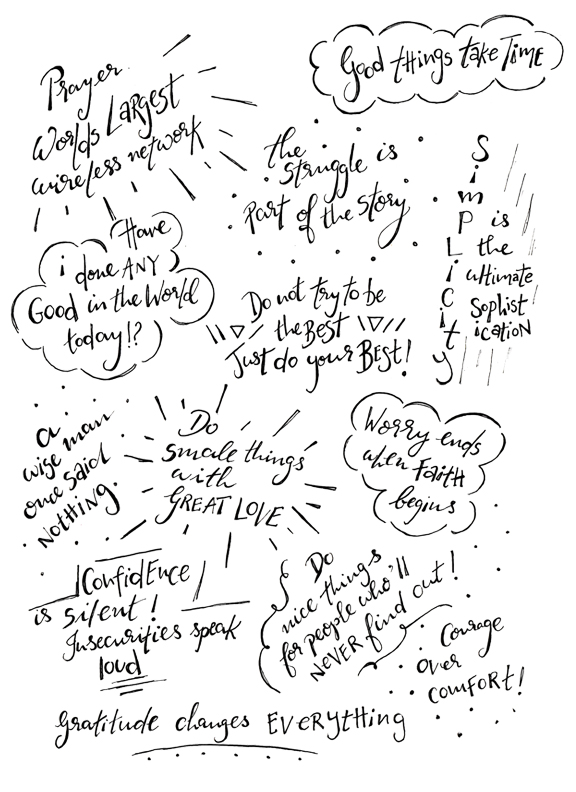 Prayer
Worlds Largest
wireless network
Good things take Time
the
struggle is
part of the story
Simplicity
is
the
ultimate
Sophist
ication
Have
i done ANY
Good in the World
today!?
Do not try to be
the Best
Just do your BEST!
a
wise man
once said
NOTHING.
Do
smale things
with
GREAT LOVE
Worry ends
when FAITH
begins
ConfidEnce
is silent!
Insecurities speak
loud
Do
nice things
for people who'll
NEVER find out!
Courage
over
comfort!
Gratitude changes EVERYthing